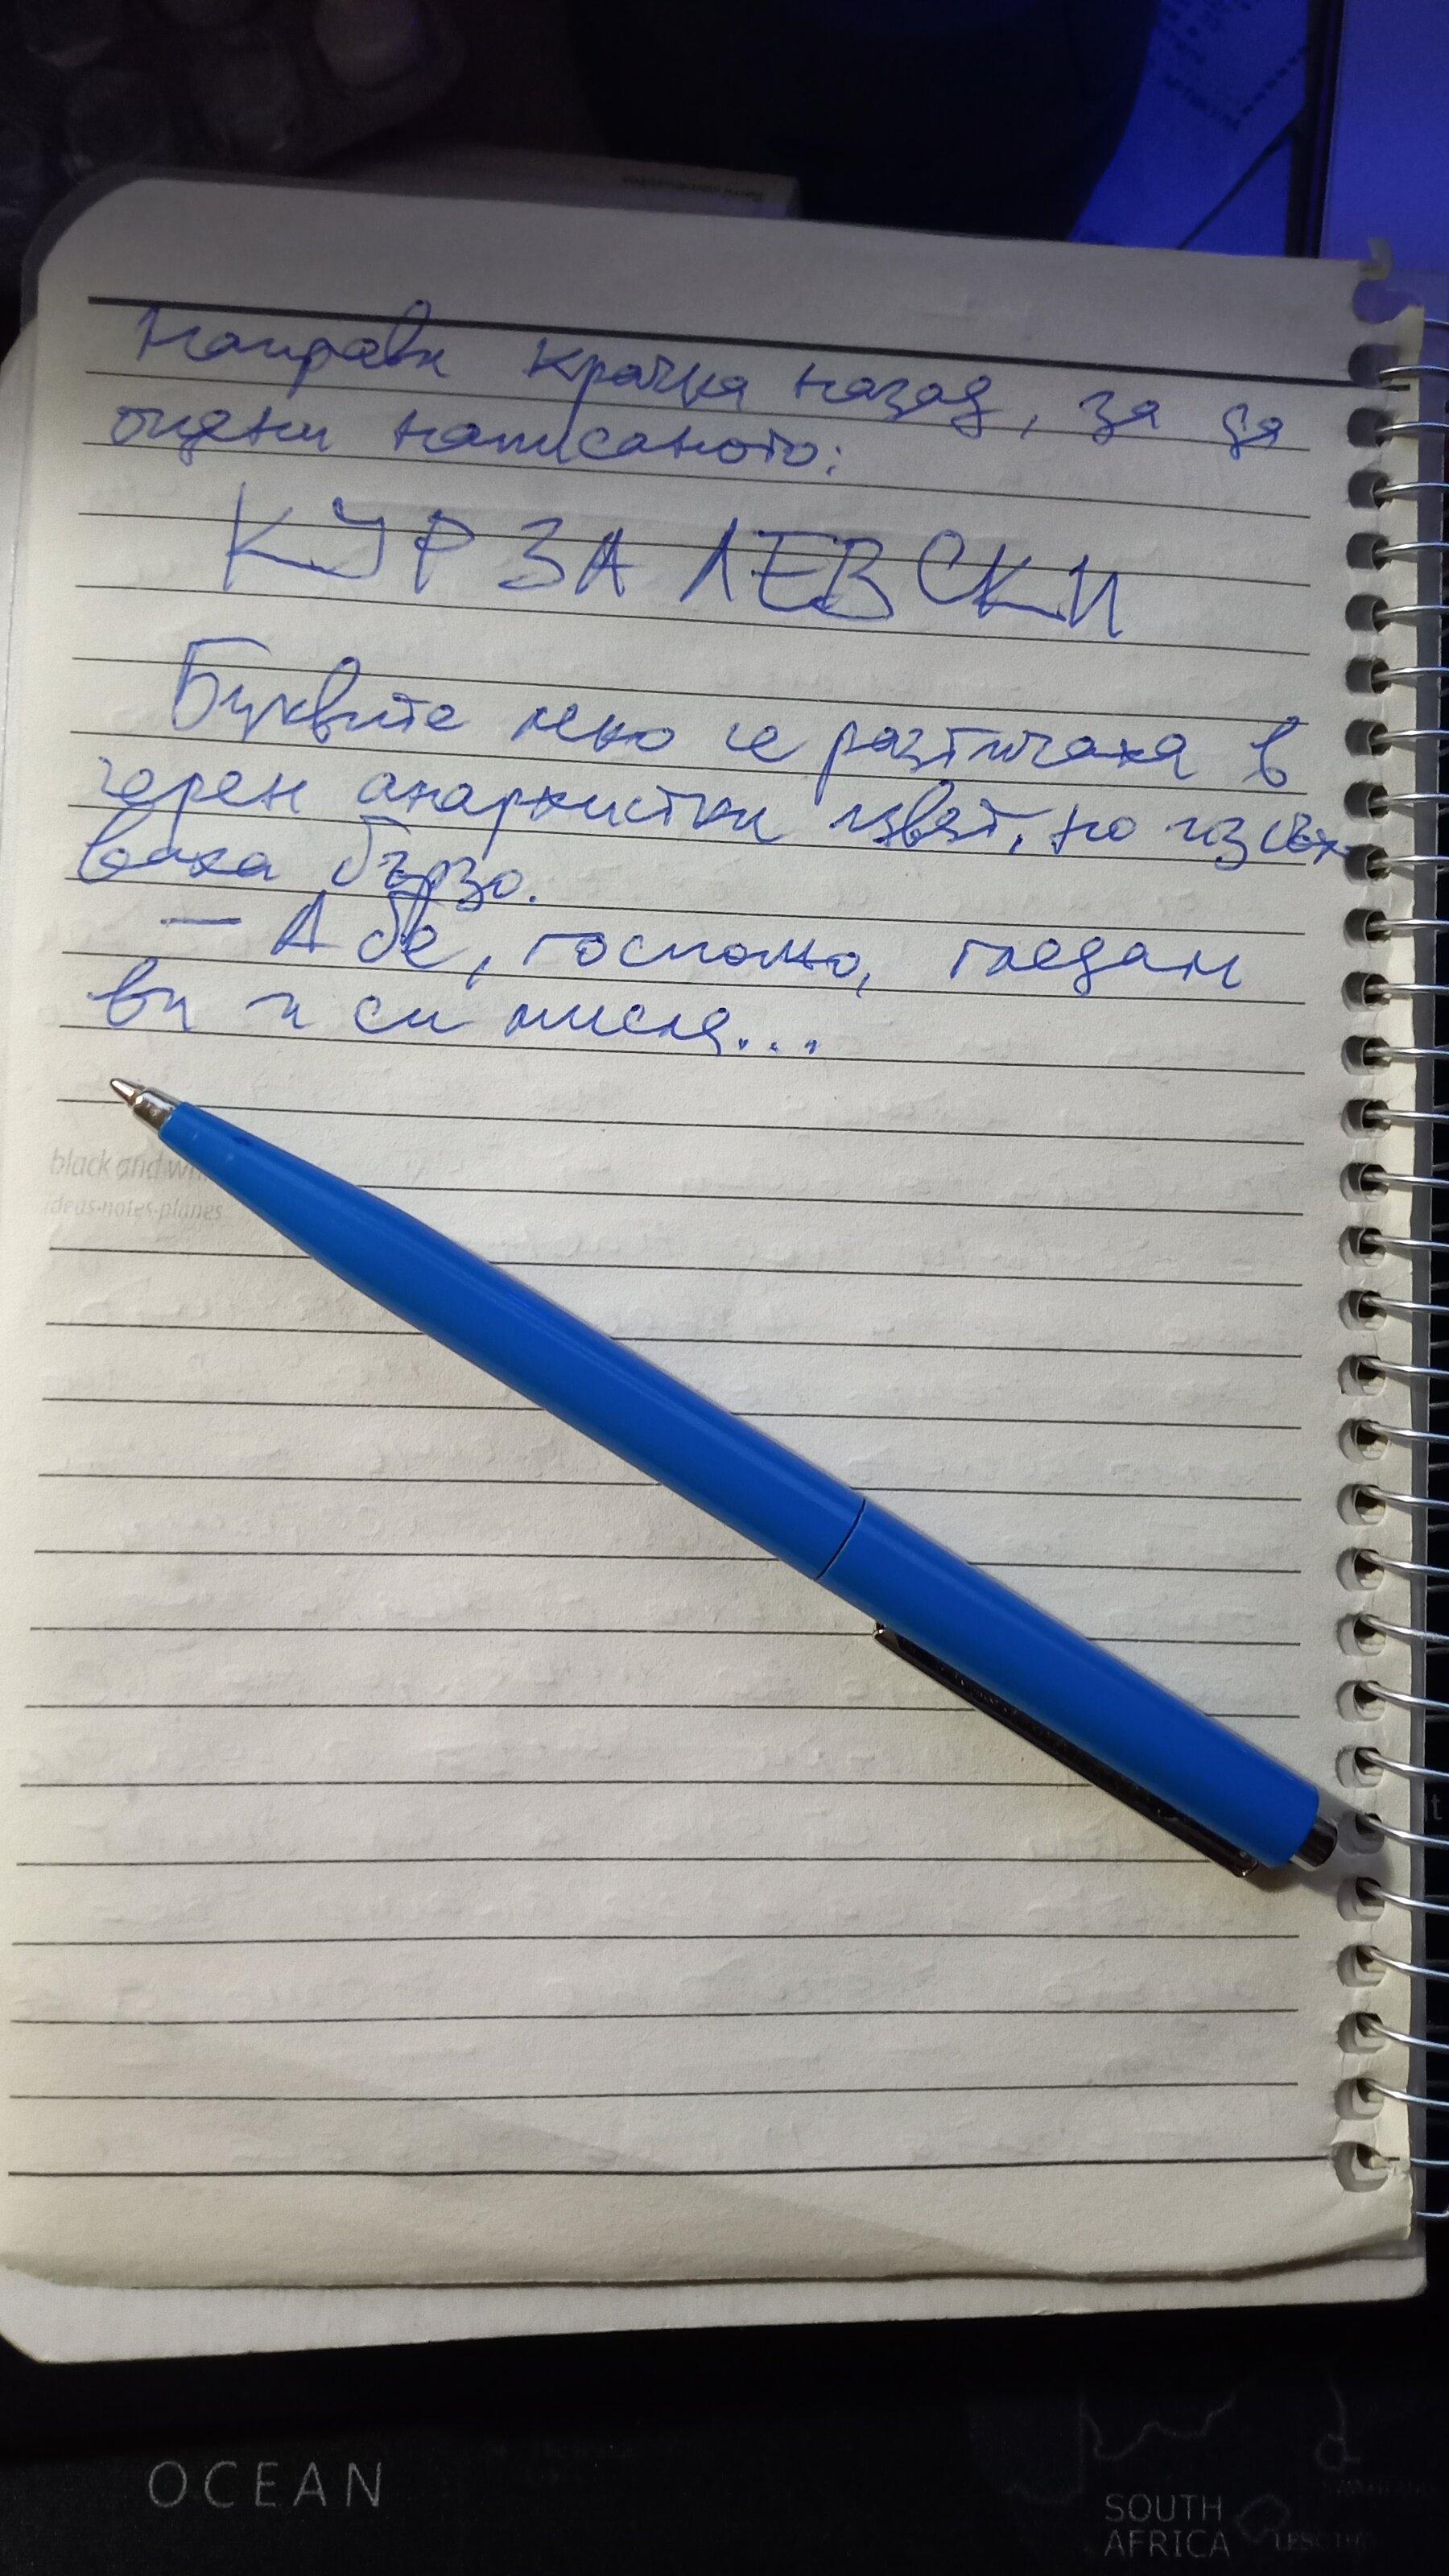 Направи крачка назад, за да
оцени написаното:
КУР ЗА ЛЕВСКИ
Буквите леко се разтичаха в
черен анархистки цвят, но изсъх-
ваха бързо.
— Абе, госпожо, гледам
ви и си мисля...
black and wh
ideas·notes·planes
OCEAN
SOUTH
AFRICA
LESOTHO